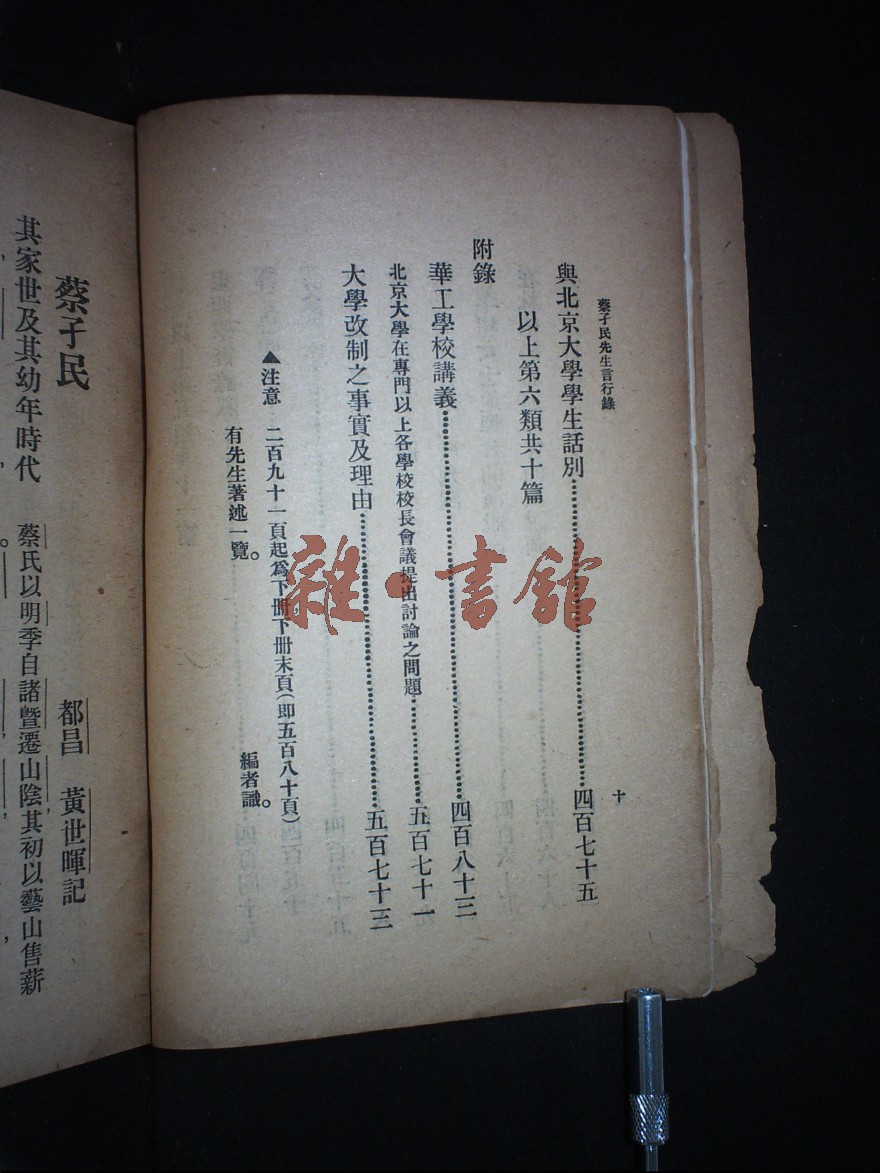 蔡孑民先生言行錄
十
與北京大學學生話別…………四百七十五
以上第六類共十篇
附錄
華工學校講義…………四百八十三
北京大學在專門以上各學校校長會議提出討論之問題…………五百七十一
大學改制之事實及理由…………五百七十三
▲注意 二百九十一頁起爲下册下册末頁(卽五百八十頁)
有先生著述一覽。 編者識。
蔡孑民
都昌 黃世暉記
其家世及其幼年時代 蔡氏以明季自諸暨遷山陰其初以藝山售薪
雜·書館